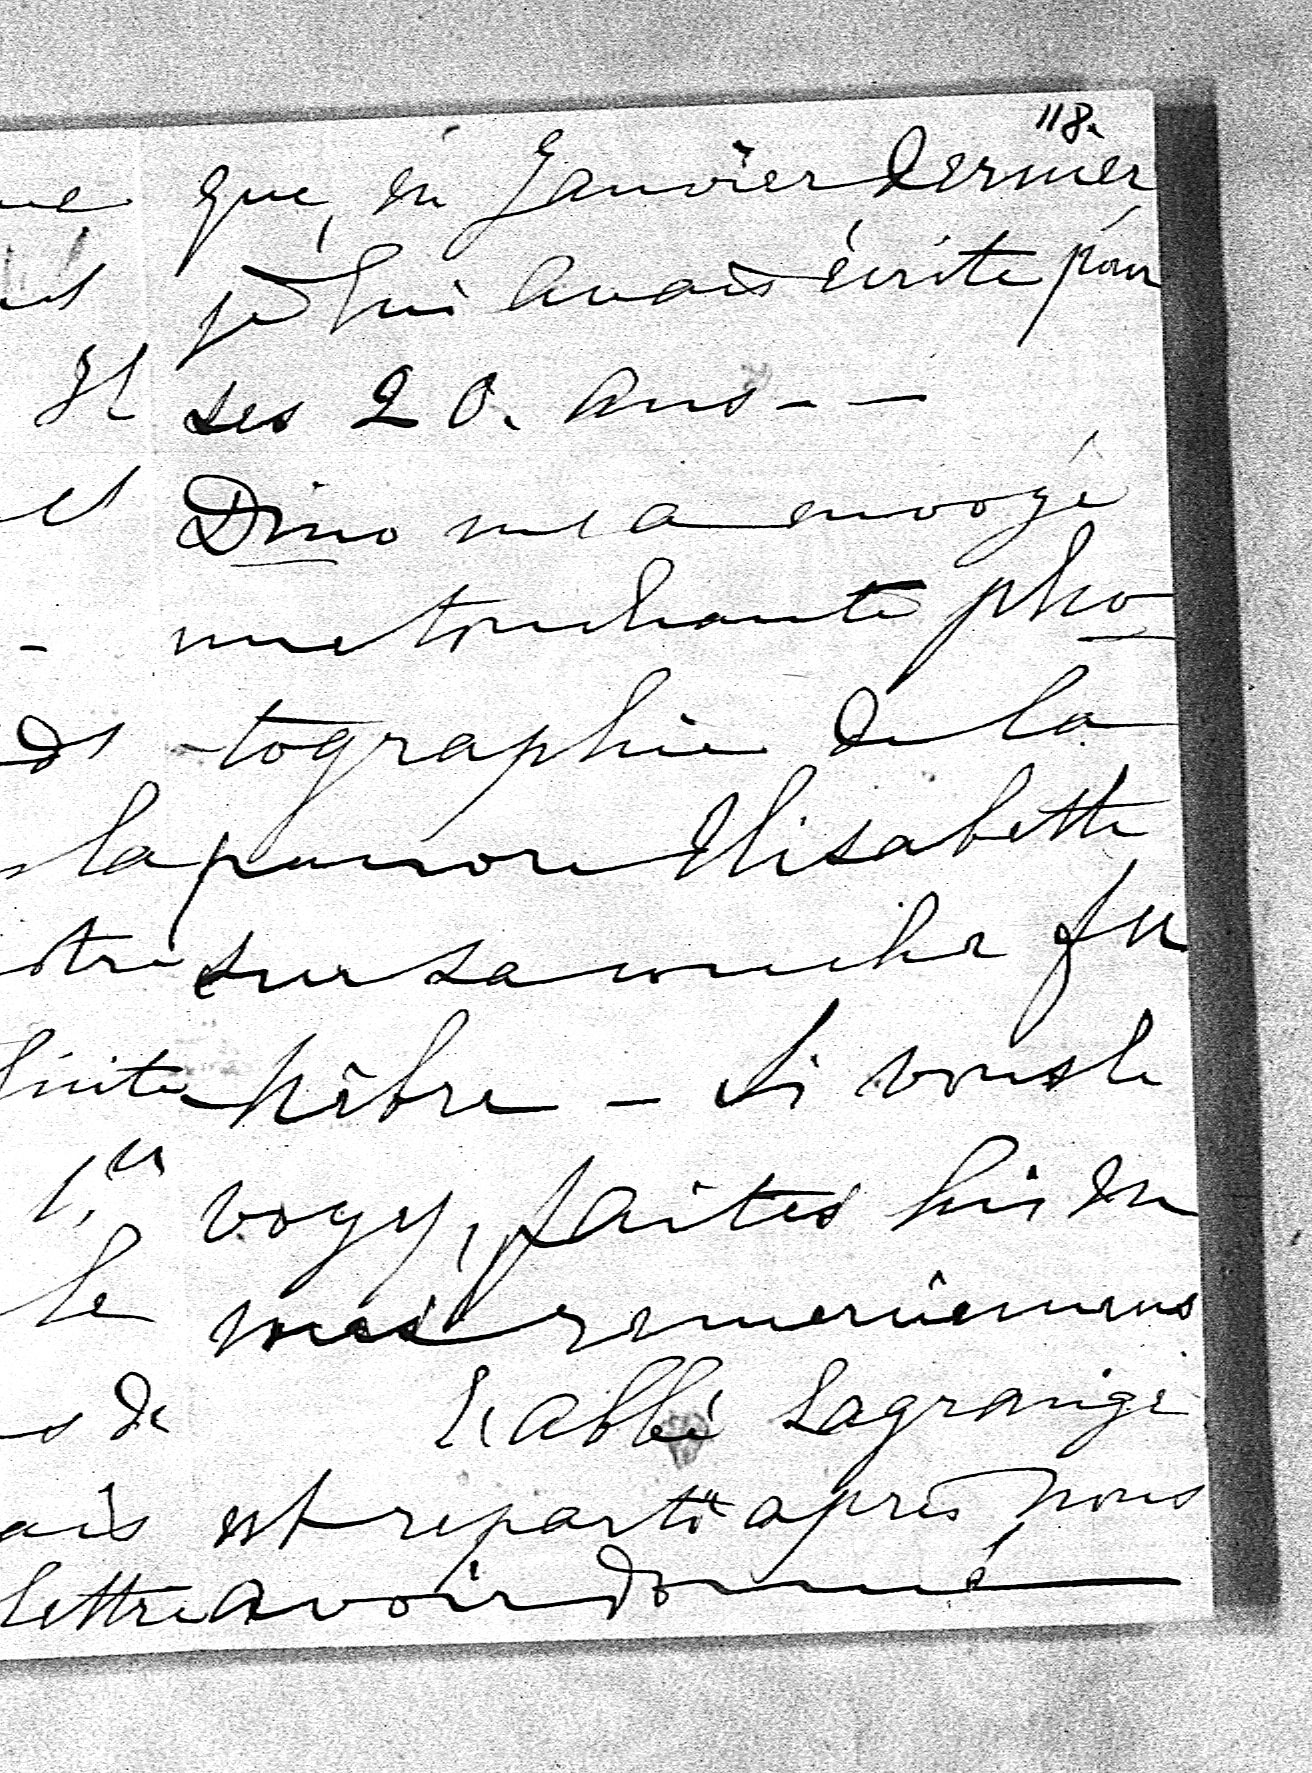 118.
que, en Janvier dernier
je lui avais écrite pour
ses 20. ans - -
Dino m'a envoyé
une touchante pho-
-tographie de la
la pauvre Elisabeth
sur sa couche fu
nèbre - Si vous le
voyez, faites lui en
mes remerciemens
L'abbé Lagrange
est reparti après nous
avoir donné
Il
et
de
la
1.er
le
s de
ais
lettre